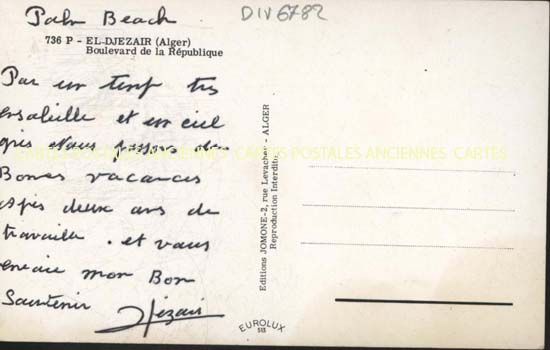 Palm Beach
DIV6782
736 P - EL-DJEZAIR (Alger)
Boulevard de la République
Par un temp très
ensoleille et un ciel
gris Nous passons de
Bones vacances
Apès deux ans de
travaille . et vous
envoie mon Bon
Souvenir
CARTES POSTALES ANCIENNES CARTES POSTALES ANCIENNES CARTES
Editions JOMONE-2, rue Levacher - ALGER
Reproduction Interdite
EUROLUX